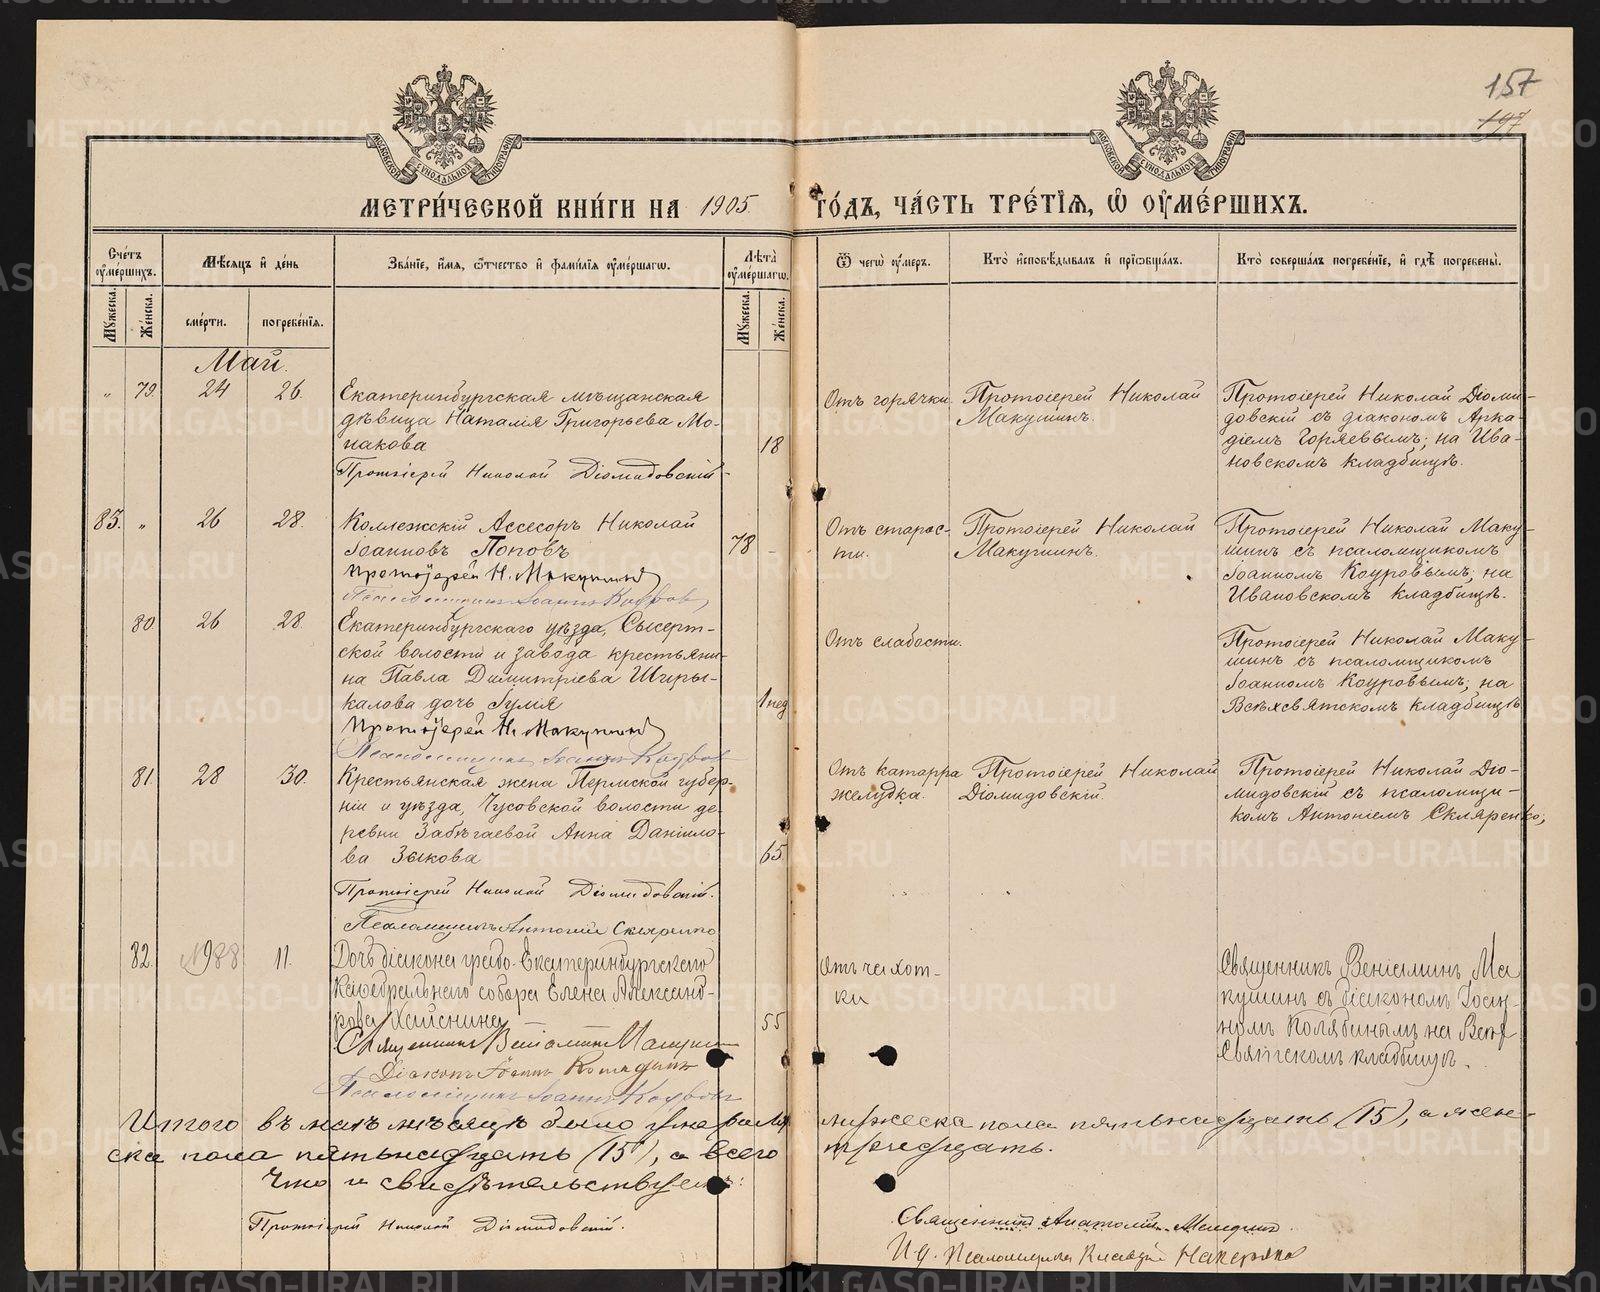 157
197
МЕТРИ́ЧЕСКОЙ КНИ́ГИ НА 1905 ГО́ДЪ, ЧА́СТЬ ТРЕ́ТІѦ, Ѡ҆ ОУ҆МЕ́РШИХЪ.
Сче́тъ оу҆ме́ршихъ.
Мѣ́сяцъ и҆ де́нь
Зва́ніе, и҆́мя, ѻ҆́тчество и҆ фами́лія оу҆ме́ршагѡ.
Лѣ́та оу҆ме́ршагѡ.
Ѿ чегѡ̀ оу҆́меръ.
Кто̀ и҆сповѣ́дывалъ и҆ прїѻбща́лъ.
Кто̀ соверша́лъ погребе́ніе, и҆ гдѣ̀ погребены̀.
Му́жеска.
Же́нска.
сме́рти.
погребе́нія.
Му́жеска.
Же́нска.
Май.
„ 79. 24 26.
Екатеринбургская мѣщанская
дѣвица Наталія Григорьева Мо-
накова
18
Протоіерей Николай Діомидовскій
Отъ горячки.
Протоіерей Николай
Макушинъ.
Протоіерей Николай Діоми-
довскій съ діакономъ Арка-
діемъ Горяевымъ; на Ива-
новскомъ кладбищѣ.
83. „ 26 28.
Коллежскій Ассесоръ Николай
Іоанновъ Поповъ
78 -
Протоіерей Н. Макушинъ
Псаломщикъ Іоаннъ Коуровъ
Отъ старос-
ти.
Протоіерей Николай
Макушинъ.
Протоіерей Николай Маку-
шинъ съ псаломщикомъ
Іоанномъ Коуровымъ; на
Ивановскомъ кладбищѣ.
80 26 28.
Екатеринбургскаго уѣзда, Сысерт-
ской волости и завода крестьяни-
на Павла Димитріева Ширы-
калова дочь Іулія
1 нед
Протоіерей Н. Макушинъ
Псаломщикъ Іоаннъ Коуровъ
Отъ слабости.
Протоіерей Николай Маку-
шинъ съ псаломщикомъ
Іоанномъ Коуровымъ; на
Всѣхсвятскомъ кладбищѣ
81. 28 30.
Крестьянская жена Пермской губер-
ніи и уѣзда, Чусовской волости де-
ревни Забѣгаевой Анна Даніило-
ва Зыкова
65.
Протоіерей Николай Діомидовскій.
Псаломщикъ Антоній Скляренко
Отъ катарра
желудка.
Протоіерей Николай
Діомидовскій.
Протоіерей Николай Діо-
мидовскій съ псаломщи-
комъ Антоніемъ Скляренко;
82. 11.
Дочь діакона градо-Екатеринбургскаго
Каѳедральнаго собора Елена Александ-
рова
55
Священникъ Веніаминъ Макушинъ
Діаконъ Іоаннъ
Псаломщикъ Іоаннъ Коуровъ
Отъ чахот-
ки
Священникъ Веніаминъ Ма
кушинъ съ діакономъ Іоан-
номъ на Всѣх
Святскомъ кладбищѣ.
Итого въ маѣ мѣсяцѣ было умершихъ мужеска пола пятьнадцать (15), а жен-
ска пола пятьнадцать (15), а всего тридцать.
Что и свидѣтельствуемъ:
Протоіерей Николай Діомидовскій.
Священникъ Анатолій
И. д. Псаломщика
METRIKI.GASO-URAL.RU